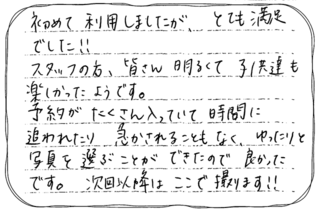 初めて利用しましたが、とても満足
でした!!
スタッフの方、皆さん明るくて子供達も
楽しかったようです。
予約がたくさん入っていて時間に
追われたり急かされることもなく、ゆったりと
写真を選ぶことができたので良かった
です。次回以降はここで撮ります!!